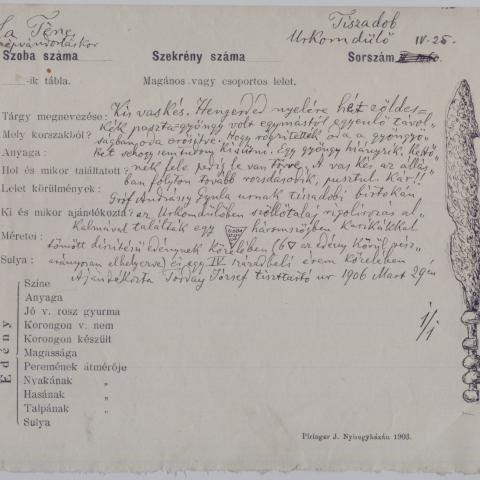 La Tène, Tiszadob
népvándorláskor Urkomdülő IV-25.
Szoba száma Szekrény száma Sorszám
-ik tábla. Magános vagy csoportos lelet.
Tárgy megnevezése: Kis vaskés. Hengerded nyelére hat zöldes-
kék paszta-gyöngy volt egymástól egyenlő távol-
Mely korszakból? ságban oda erősítve. Hogy rögzítették oda a gyöngyö-
Anyaga: ket sehogy sem tudom kisütni. Egy gyöngy hiányzik. Kettő-
Hol és mikor találtatott? nek fele pedig le van törve. A vas kés az állás-
ban folyton tovább rozsdásodik, pusztul. Kár!!
Lelet körülmények: Gróf Andrássy Gyula urnak tiszadobi birtokán
Ki és mikor ajándékozta? az Urkomdülőben szőllőtalaj rigolirozás al-
Méretei: kalmával találták egy háromszögben karikákkal
tömött díszítésű edénynek közelében (6 az edény körül
Sulya: arányosan elhelyezve) és egy IV. századbeli érem közelében
Ajándékozta Torday József tiszttartó ur 1906 Mart 29én
Edény
Szine
Anyaga
Jó v. rosz gyurma
Korongon v. nem
Korongon készült
Magassága
Peremének átmérője
Nyakának "
Hasának "
Talpának "
Sulya
1/1
Piringer J. Nyiregyházán 1903.